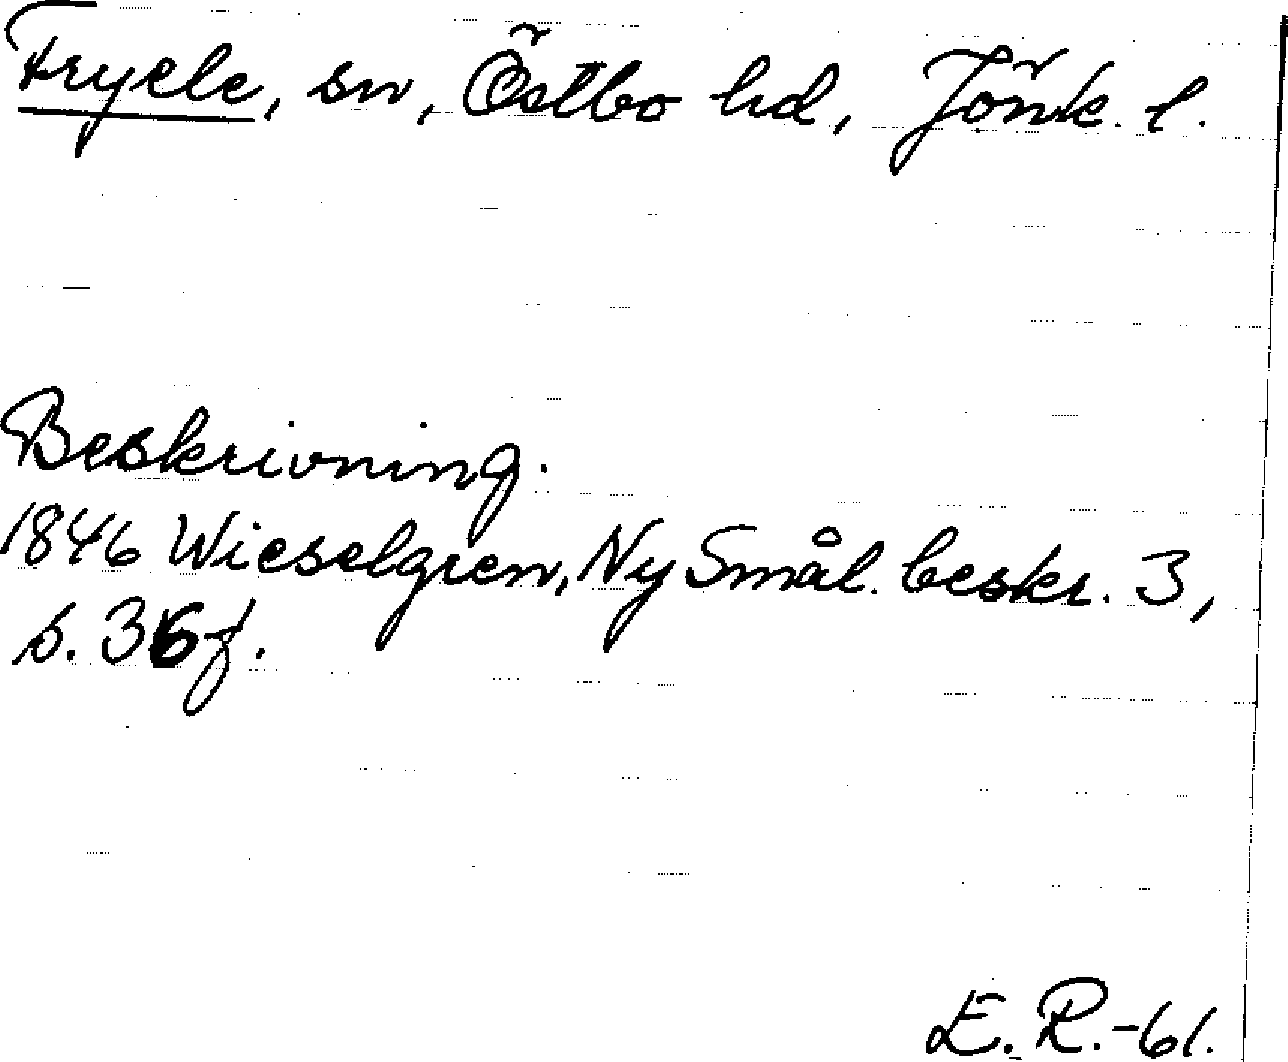 Fryele, sn, Östbo hd, Jönk. l.
Beskrivning.
1846 Wieselgren, Ny Smål. beskr. 3,
s. 36f.
E. R.-61.